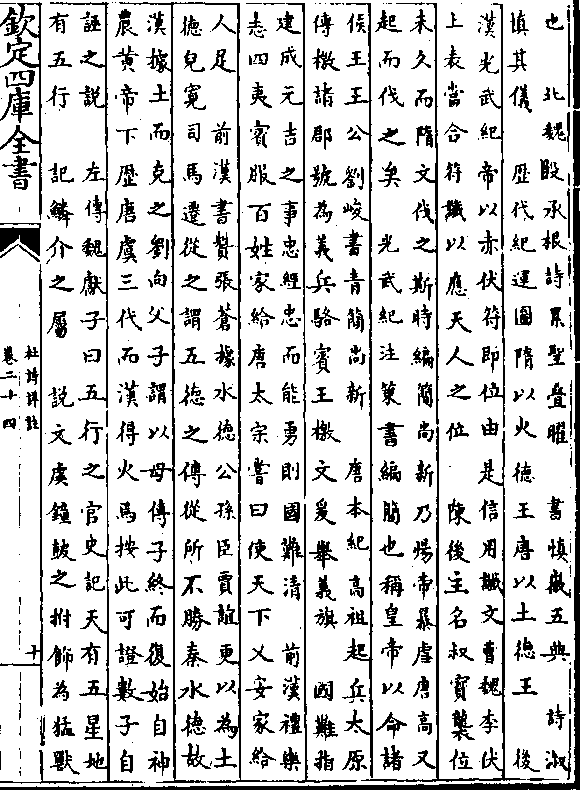 也　北魏段承根詩累聖疊曜　書慎徽五典　詩淑
慎其儀　歷代紀運圖隋以火德王唐以土德王　後
漢光武紀帝以赤伏符即位由是信用讖文曹魏李伏
上表當合符讖以應天人之位　陳後主名叔寶襲位
未久而隋文伐之斯時編簡尚新乃煬帝暴虐唐高又
起而伐之矣　光武紀注策書編簡也稱皇帝以命諸
侯王王公劉峻書青簡尚新　唐本紀高祖起兵太原
傳檄諸郡號為義兵駱賓王檄文爰舉義旗　國難指
建成元吉之事忠經忠而能勇則國難清　前漢禮樂
志四夷賓服百姓家給唐太宗嘗曰使天下乂安家給
人足　前漢書贊張蒼據水德公孫臣賈誼更以為土
德兒寛司馬遷從之謂五德之傳從所不勝秦水德故
漢據土而克之劉向父子謂以母傳子終而復始自神
農黄帝下歷唐虞三代而漢得火焉按此可證數子自
誣之説　左傳魏獻子曰五行之官史記天有五星地
有五行　記鱗介之屬　説文虡鐘鼓之柎飾為猛獸
欽定四庫全書
杜詩詳註
卷二十四
十